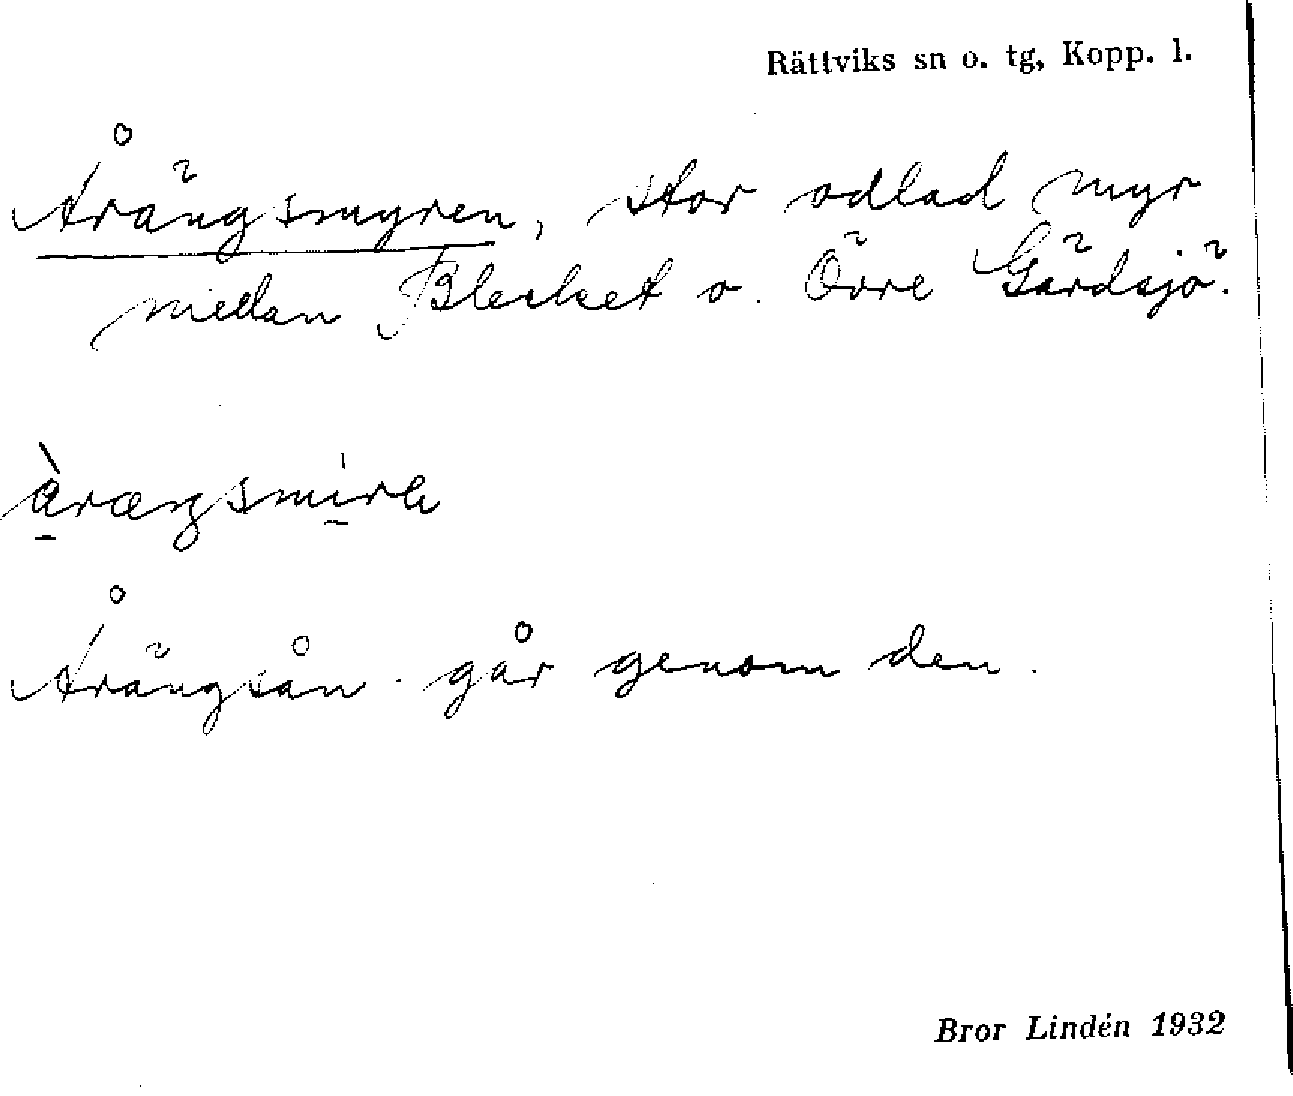 Rättviks sn o. tg, Kopp. l.
Årängsmyren, stor odlad myr
mellan Blecket o. Övre Gärdsjö.
Årängsån går genom den.
Bror Lindén 1932